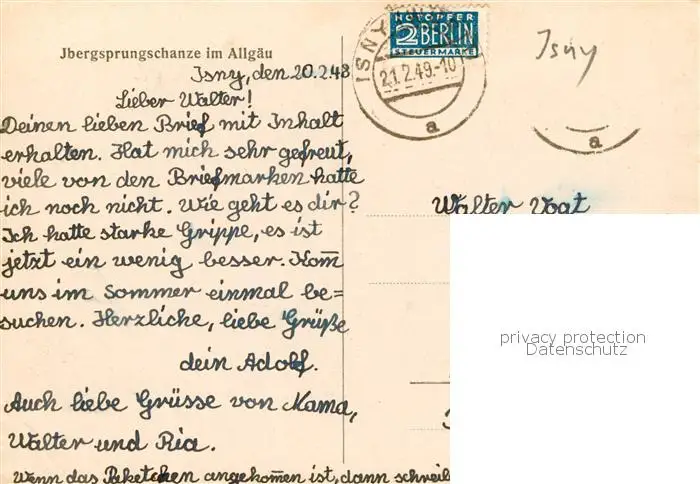 Jbergsprungschanze im Allgäu
NOTOPFER
2 BERLIN
STEUERMARKE
ISNY
21.2.49.-10
a
Isny
a
Isny, den 20.2.48
Lieber Walter!
Deinen lieben Brief mit Inhalt
erhalten. Hat mich sehr gefreut,
viele von den Briefmarken hatte
ich noch nicht. Wie geht es dir?
Ich hatte starke Grippe, es ist
jetzt ein wenig besser. Kom̅
uns im Sommer einmal be=
suchen. Herzliche, liebe Grüße
dein Adolf.
Auch liebe Grüsse von Mama,
Walter und Ria.
Wenn das Paketchen angekom̅en ist, dann schreib
Walter Vogt
privacy protection
Datenschutz